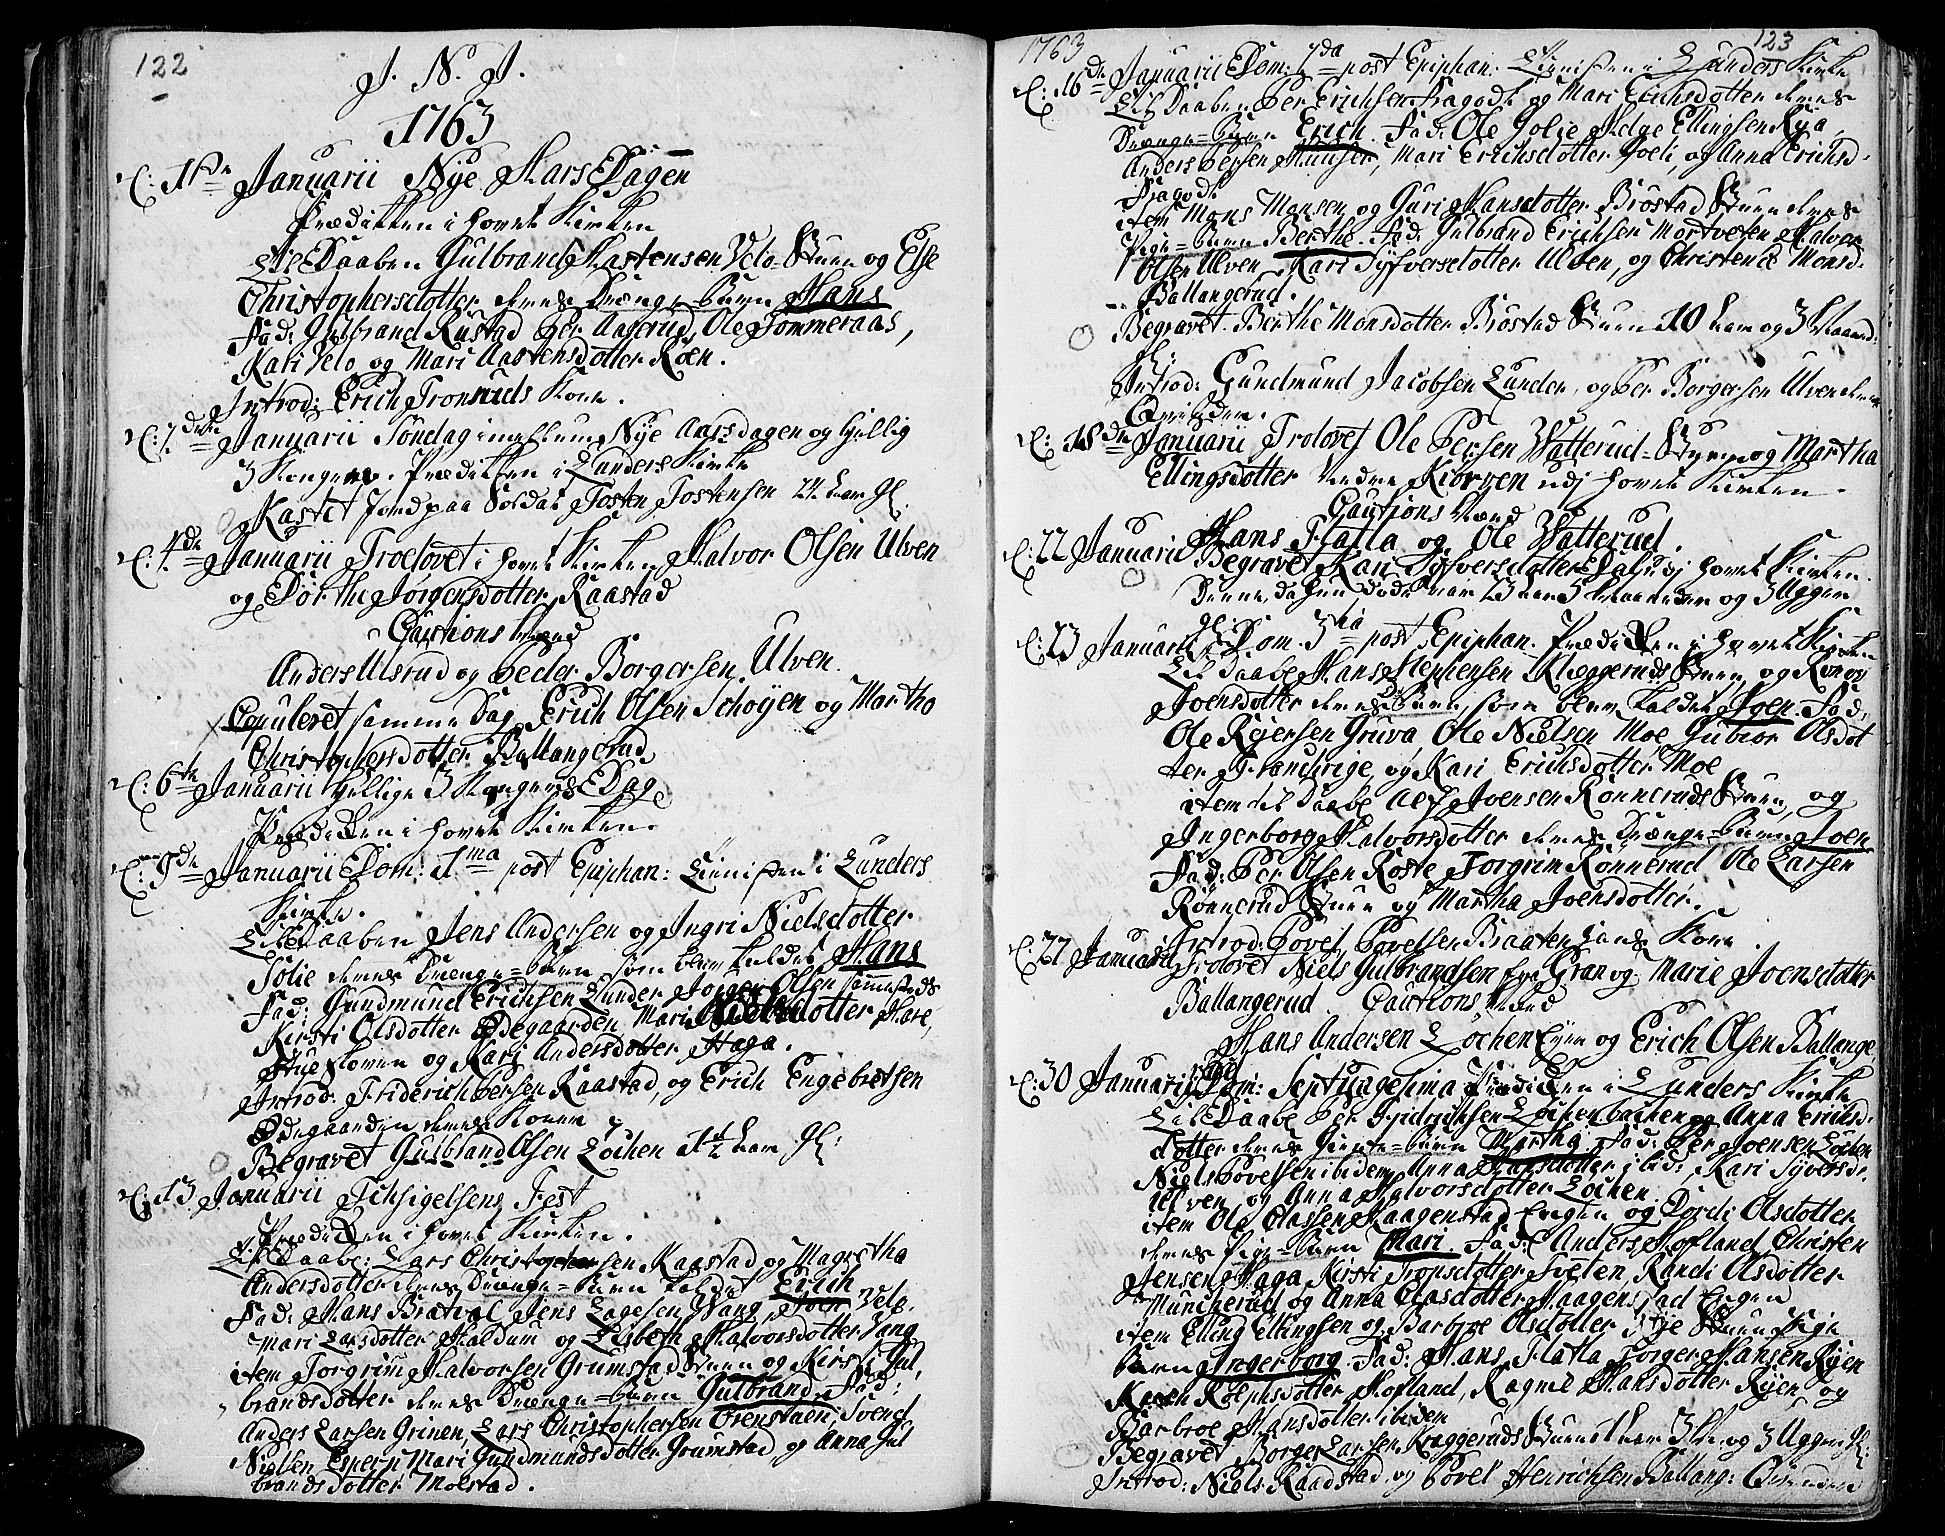 122
J. N. J.
1763
d: 1ste Januarii Nye Aars Dagen
Prædiken i Hovet Kirken
Til Daaben Gulbrand Hastensen Velo-Stuen og Else
Christophersdotter deres Drænge-Barn Hans
Fad: Gulbrand Rustad Per Aaserud, Ole Sommeraas,
Kari Velo og Mari Aastensdotter Roen.
Introd: Erich Tronruds Kone.
Januarii Søndag imellum Nye Aarsdagen og hellig
3 Konger. Prædiken i Lunders Kirke
Kastet Jord paa Soldat Tosten Tostensen 24 aar gl.
d: 4de Januarii Troelovet i Hovet Kirken Halvor Olsen Ulven
og Dorthe Jørgensdotter Raastad
Cautions Mænd
Anders Ulsrud og Peder Borgersen Ulven.
Copuleret samme Dag Erich Olsen Schoyen og Martha
Christophersdotter Ballangerud
d: 6te Januarii Hellige 3 Kongers Dag
Prædiken i Hovet Kirken.
d: 9de Januarii Dom: 1ma post Epiphan: i Lunders
Kirke.
Til Daaben Jens Andersen og Ingri Nielsdotter
Tolie deres Drænge=Barn som blev kaldet Hans
Fad: Gundmund Erichsen Lunder Jørgen Olsen sammesteds
Kirsti Olsdotter Ødegaarden Mari Nielsdotter Hare,
og Kari Andersdotter Haga.
Introd: Friderich Persen Raastad, og Erich Engebretsen
Ødegaarden deres Koner
Begravet Gulbrand Olsen Lochen 1½ aar gl:
d: 13 Januarii Tihsigelsens Fest
Prædiken i Hovet Kirken.
Til Daabe: Lars Christophersen Raastad og Magretha
Andersdotter deres Drænge=Barn kaldet Erich
Fad: Hans Bratval Jens Lagesen Wang, Joen Velo.
Mari Larsdotter Haldum og Lisbeth Halvorsdotter Vang
item Torgrim Halvorsen Grumstad Stuen og Kirsti Gul
brandsdotter deres Drænge=Barn Gulbrand. Fad:
Anders Larsen Grinen, Lars Christophersen Ørenstaen, Svend
Nielsen Espern Mari Gundmundsdotter Grumstad og Anna Gul
brandsdotter Moestad.
1763
123
d: 16de Januarii Dom: 2da post Epiphan: i Lunders Kirke
Til Daaben Per Erichsen Fragodt og Mari Erichsdotter deres
Drænge=Barn Erich. Fad: Ole Jolie Helge Ellingsen Rya,
Anders Persen Hunser, Mari Erichsdotter Joeli, og Anna Erichsd.
Fragodt
item Mons Monsen og Guri Hansdotter Brøstad Stuen deres
Pige=Barn Berthe. Fad: Gulbrand Erichsen Mortvesen Halvor
Olsen Ulven, Kari Syfversdotter Ulven, og Christence Monsd.
Ballangerud.
Begravet. Berthe Monsdotter Brøstad Stuen 10 aar og 3 Maaned:
gl:
Introd: Gundmund Jacobsen Lunder, og Per Borgersen Ulven deres
Qvinder.
d: 18de Januarii Trolovet Ole Persen Watterud-Stuen og Martha
Ellingsdotter Nedre Kiorven udj Hovet Kirken.
Cautions Mænd
Hans Flatla og Ole Watterud.
d: 22 Januarii Begravet Kari Syfversdotter i Hovet Kirken.
Denne, da hun døde var 23 aar 5 Maaneder og 3 Uger
gl.
d: 23 Januarii Dom. 3tia post Epiphan. Prædiken i Hovet Kirken
Til Daabe Hans Stephensen Kleggeruds Stuen og Ronnov
Joensdotter deres Barn, som blev kaldet Joen. Fad,
Ole Rejersen Gruva, Ole Nielsen Moe Gubior Olsdot
ter Framrige, og Kari Erichsdotter Moe
item til Daabe Alf Joensen Rønneruds Stuen, og
Ingerborg Halvorsdotter deres Drænge=Barn Joen
Fad: Per Olsen Roste Torgrim Rønnerud Ole Larsen
Rønnerud Stuen og Martha Joensdotter.
Introd: Povel Povelsen Braaten hans Kone.
d: 27 Januarii Trolovet Niels Gulbrandsen fra Gran og Marie Joensdotter
Ballangerud. Cautions Mænd
Hans Andersen Lochen Eyen og Erich Olsen Ballange
rud
d: 30 Januarii Dom: Septuagesima Prædiken i Lunders Kirke
Til Daabe Per Fridrichsen Lochenbachen og Anna Erichs
dotter deres Pige=Barn Martha Fad: Per Joensen Lochen
Niels Povelsen ibidem Anna Larsdotter ibid, Kari Syversd.
Ulven og Anna Halvorsdotter Lochen.
item Ole Olassen Haagenstad Engen og Dordi Olsdotter
deres Pige=Barn Mari Fad: Anders Hofland Christen
Jensen Haga Kirsti Tronsdotter Svelen, Randi Olsdotter
Muncherud og Anna Olasdotter Haagenstad Engen
item Elling Ellingsen og Barbroe Olsdotter Rye Stuen Pige
Barn Ingerborg. Fad: Hans Flatla Torger Hansen Ryen
Karen Roelphsdotter Hofland, Ragnil Hansdotter Ryen, og
Barbroe Hansdotter ibidem
Begravet Borger Larsen Kraggeruds Stuen 1 aar 3 M. og 3 Uger gl:
Introd: Niels Raadstad, og Povel Henrichsen Ballang: Qvinder